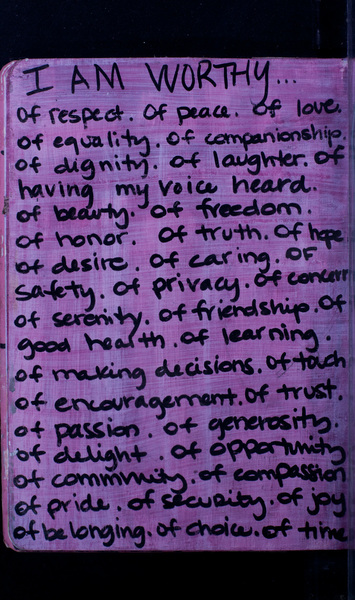 I AM WORTHY...
of respect. Of peace. of love.
of equality. of companionship.
of dignity. of laughter. of
having my voice heard.
of beauty. of freedom.
of honor. of truth. of hope
of desire. of caring. of
safety. of privacy. of concern
of serenity. of friendship. Of
good health. of learning.
of making decisions. of touch
of encouragement. of trust.
of passion. of generosity.
of delight. of opportunity
of community. of compassion
of pride. of security. of joy
of belonging. of choice. of time